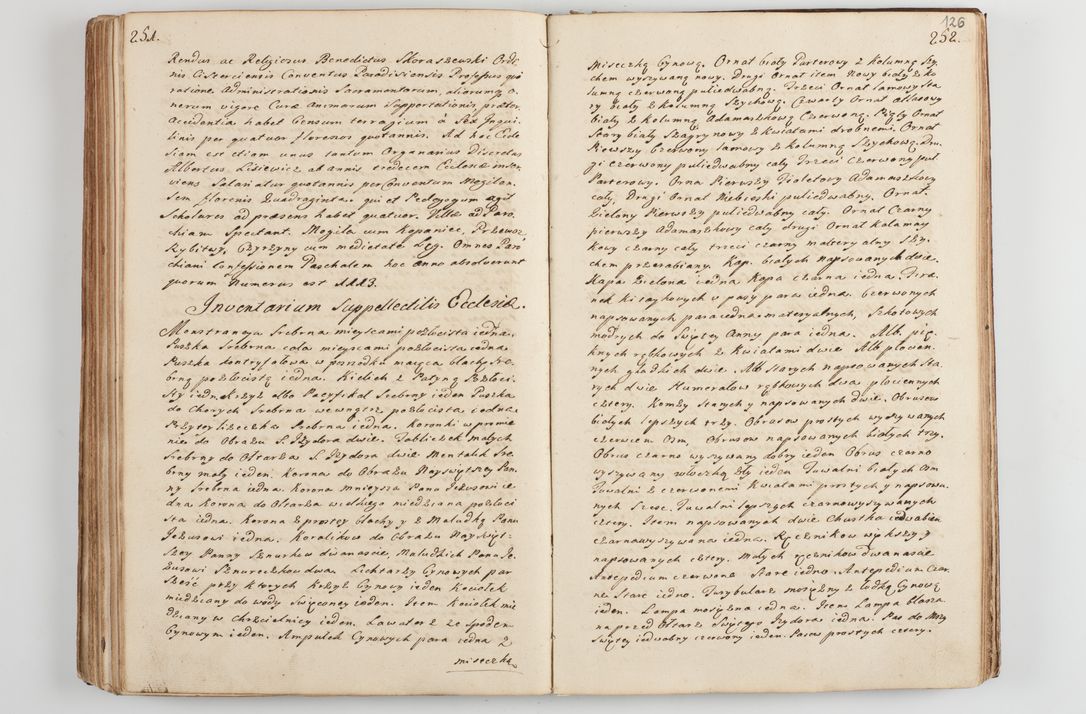 251.
Rendus ac Religiosus Benedictus Skoraszewski Ordi-
nis Cisterciensis Conventus Paradisiensis Professus qui
ratione Administrationis Sacramentorum, aliorumq. o-
nerum vigore Curæ Animarum Supportationis, præter
Accidentia habet Censum terragium a Sex Inqui-
linis per quatuor florenos quotannis. Ad hoc Eccle-
siam est etiam unus tantum Organarius Discretus
Albertus Lisiewicz, ab annis tredecem Ecclesiæ inser-
viens Salariatur quotannis per Conventum Mogilen-
sem florenis Quadraginta. qui et Pedagogum agit
Scholares ad præsens habet quatuor. Villæ ad Paro-
chiam Spectant. Mogiła cum Kopaniec, Przewoz
Rybitwy, Czyrzyny cum medietate Łęg. Omnes Paro-
chiani Confessionem Paschalem hoc anno absolverunt
quorum Numerus est 1113.
Inventarium Suppellectilis Ecclesiæ.
Monstrancya Srebrna mieyscami pozłocista iedna.
Puszka Srebrna cała mieyscami pozłocista iedna.
Puszka kontryfałowa w posrodku maiąca blachę Sre-
brną pozłocistą iedna. Kielich z Patyną Pozłoci-
sty ieden. Krzyż albo Pacyfikał Srebrny ieden Puszka
do Chorych Srebrna we wnątrz pozłocista iedna.
Przytey łyżeczka Srebrna iedna. Koronki w promie-
niec do Obrazu S. Jzydora dwie. Tabliczek małych
Srebrny do Ołtarza S. Jzydora dwie Mentalik Sre-
brny mały ieden. Korona do Obrazu Nayswiętszey Pan-
ny Srebrna iedna. Korona mnieysza Panu Jezusowi ie-
dna Korona do Ołtarza wielkiego miedziana pozłoci-
sta iedna. Korona z prostey blachy y z Maludką Panu
Jezusowi iedna. Koralikow do Obrazu Nayswięt-
szey Panny Sznurkow dwanascie, Maludkich Panu Je-
zusowi Sznureczkow dwa. Lichtarzy Cynowych par
Szesć przy ktorych krzyż Cynowy ieden Kociołek
miedziany do wody Swięconey ieden. Item Kociołek mie-
dziany w Chrzcielnicy ieden. Lawaterz ze spodem
Cynowym ieden. Ampułek Cynowych para iedna z
miseczką
126
252.
Miseczką Cynową. Ornat biały Parterowy z kolumną Szy-
chem wyszywaną nowy. Drugi Ornat item Nowy biały z ko-
lumną czerwoną puliedwabną. Trzeci Ornat lamowy Sta-
ry biały z kolumną Szychową. Czwarty Ornat atłasowy
biały z kolumną Adamaszkową Czerwoną. Piąty Ornat
Stary biały Szagrynowy z kwiatami drobnemi. Ornat
Pierwszy Czerwony lamowy z kolumną Szychową. Dru-
gi czerwony puliedwabny cały Trzeci Czerwony pul
Parterowy. Orna Pierwszy Fioletowy Adamaszkowy
cały, Drugi Ornat Niebieski puliedwabny. Ornat
Zielony Pierwszy puliedwabny cały. Ornat Czarny
pierwszy Adamaszkowy cały drugi Ornat kalamay-
kowy czarny cały trzeci czarny materyalny Szy-
chem przerabiany. Kap. białych napsowanych dwie.
Kapa Zielona iedna Kapa czarna iedna. Fira-
nek kitaykowych w pasy para iedna. Czerwonych
napsowanych para iedna. materyalnych, Szkotowych
modrych do Swiętey Anny para iedna. Alb. pię-
knych rąbkowych z kwiatami dwie Alb płocien-
nych gładkich dwie. Alb Starych napsowanych Sta-
rych dwie Humerałow rąbkowych dwa płociennych
cztery. Komży Starych y napsowanych dwie. Obrusow
białych lepszych trzy. Obrusow prostych wyszywanych
czerwien Osm, Obrusow napsowanych białych trzy.
Obrus czarno wyszywany dobry ieden Obrus czarno
wyszywany włoczką zły ieden Tuwalni białych Osm
Tuwalni z czerwonemi kwiatami prostych y napsowa-
nych Szesć. Tuwalni lepszych czarno wyszywanych
cztery. Item napsowanych dwie Chustka iedwabiem
czarno wyszywana iedna. Ręcznikow większy y
napsowanych cztery. Małych ręcznikow dwanascie
Antepedium czerwone Stare iedno. Antepedium Czar-
ne Stare iedno. Turybularz mosiężny z łodką Cynową
ieden. Lampa mosiężna iedna. Item Lampa blasza-
na przed Ołtarz Swiętego Jzydora iedna. Pas do Mszy
Swiętey iedwabny czerwony ieden. Pasow prostych cztery.